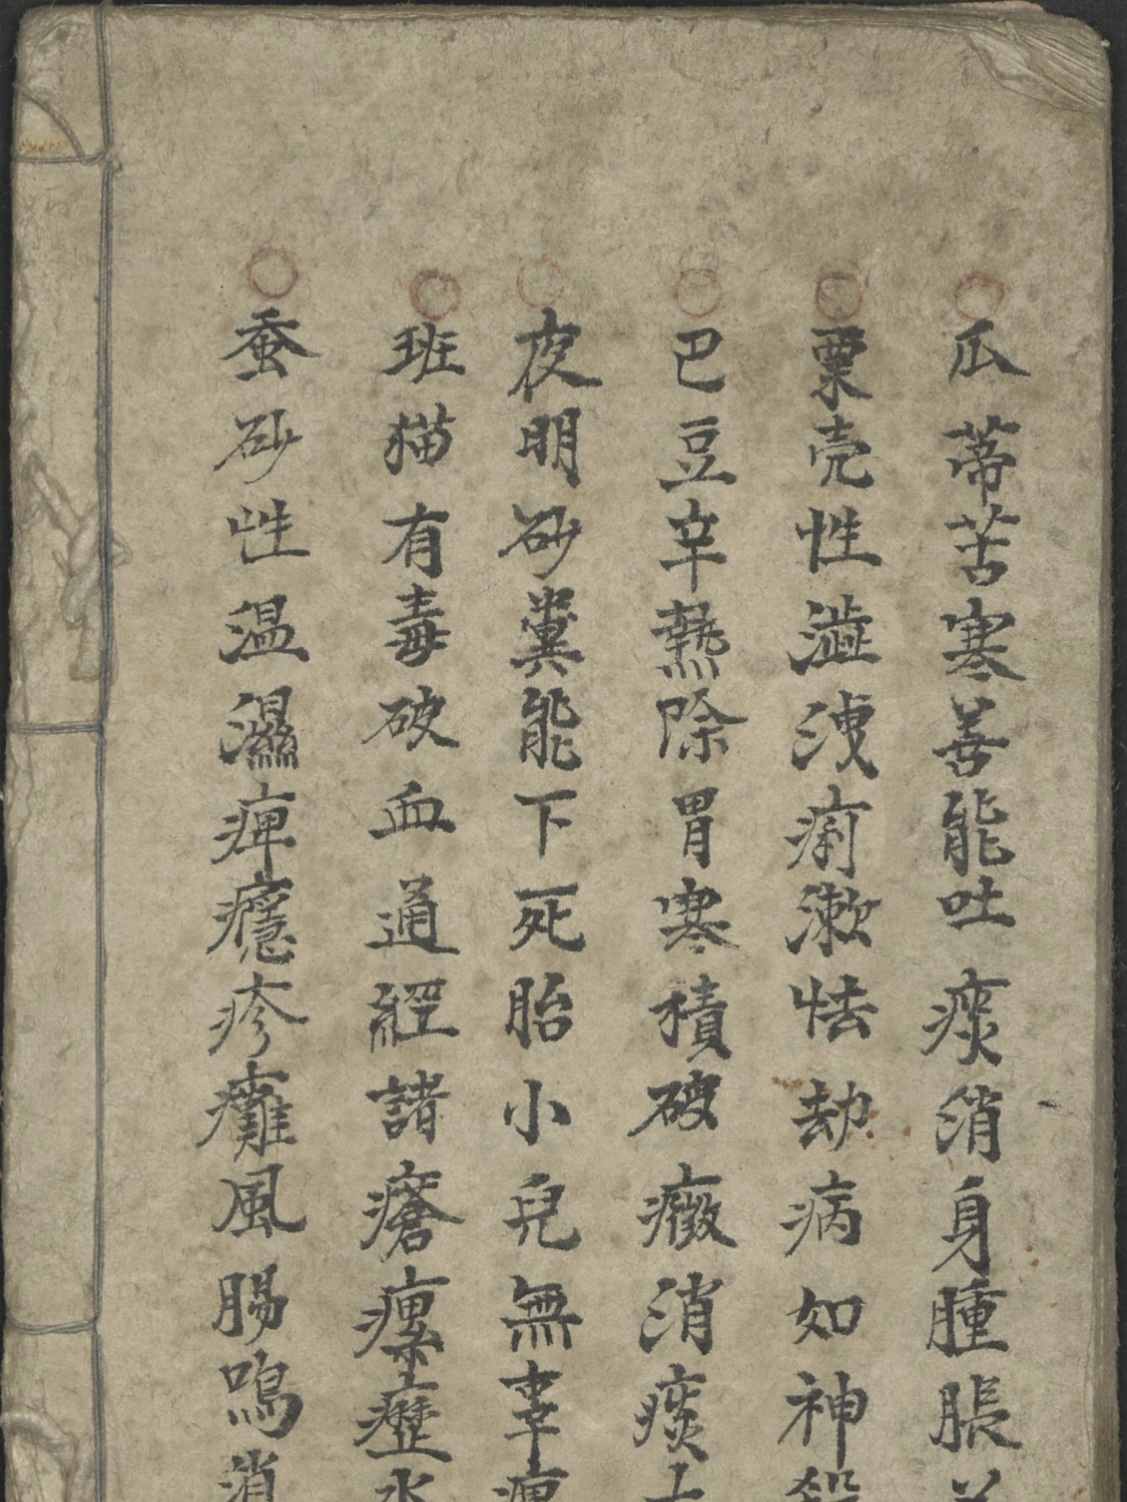 瓜蒂苦寒善能吐痰消身腫脹並
粟壳性澁洩痢漱怯劫病如神殺
巴豆辛熱除胃寒積破癥消痰
夜明砂糞能下死胎小兒無辜
班猫有毒破血通經諸瘡瘰癧水
蚕砂性温濕痺癮疹癱風腸鳴消